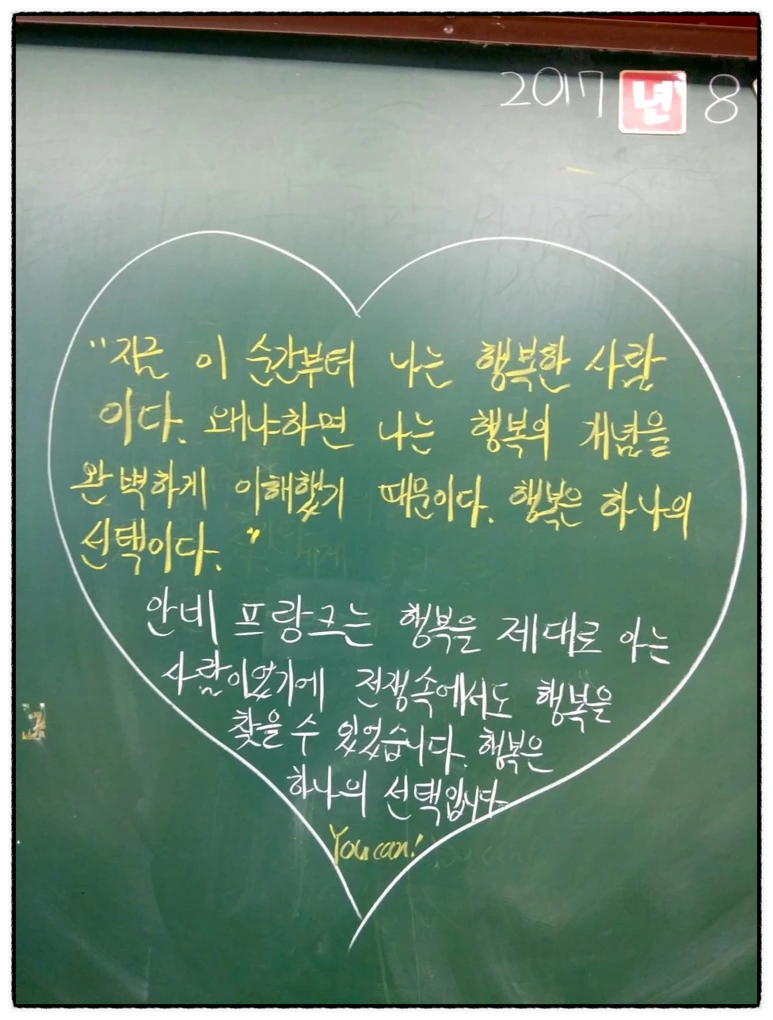 2017 년 8
"지금 이 순간부터 나는 행복한 사람
이다. 왜냐하면 나는 행복의 개념을
완벽하게 이해했기 때문이다. 행복은 하나의
선택이다."
안네 프랑크는 행복을 제대로 아는
사람이었기에 전쟁속에서도 행복을
찾을 수 있었습니다. 행복은
하나의 선택입니다.
You can!